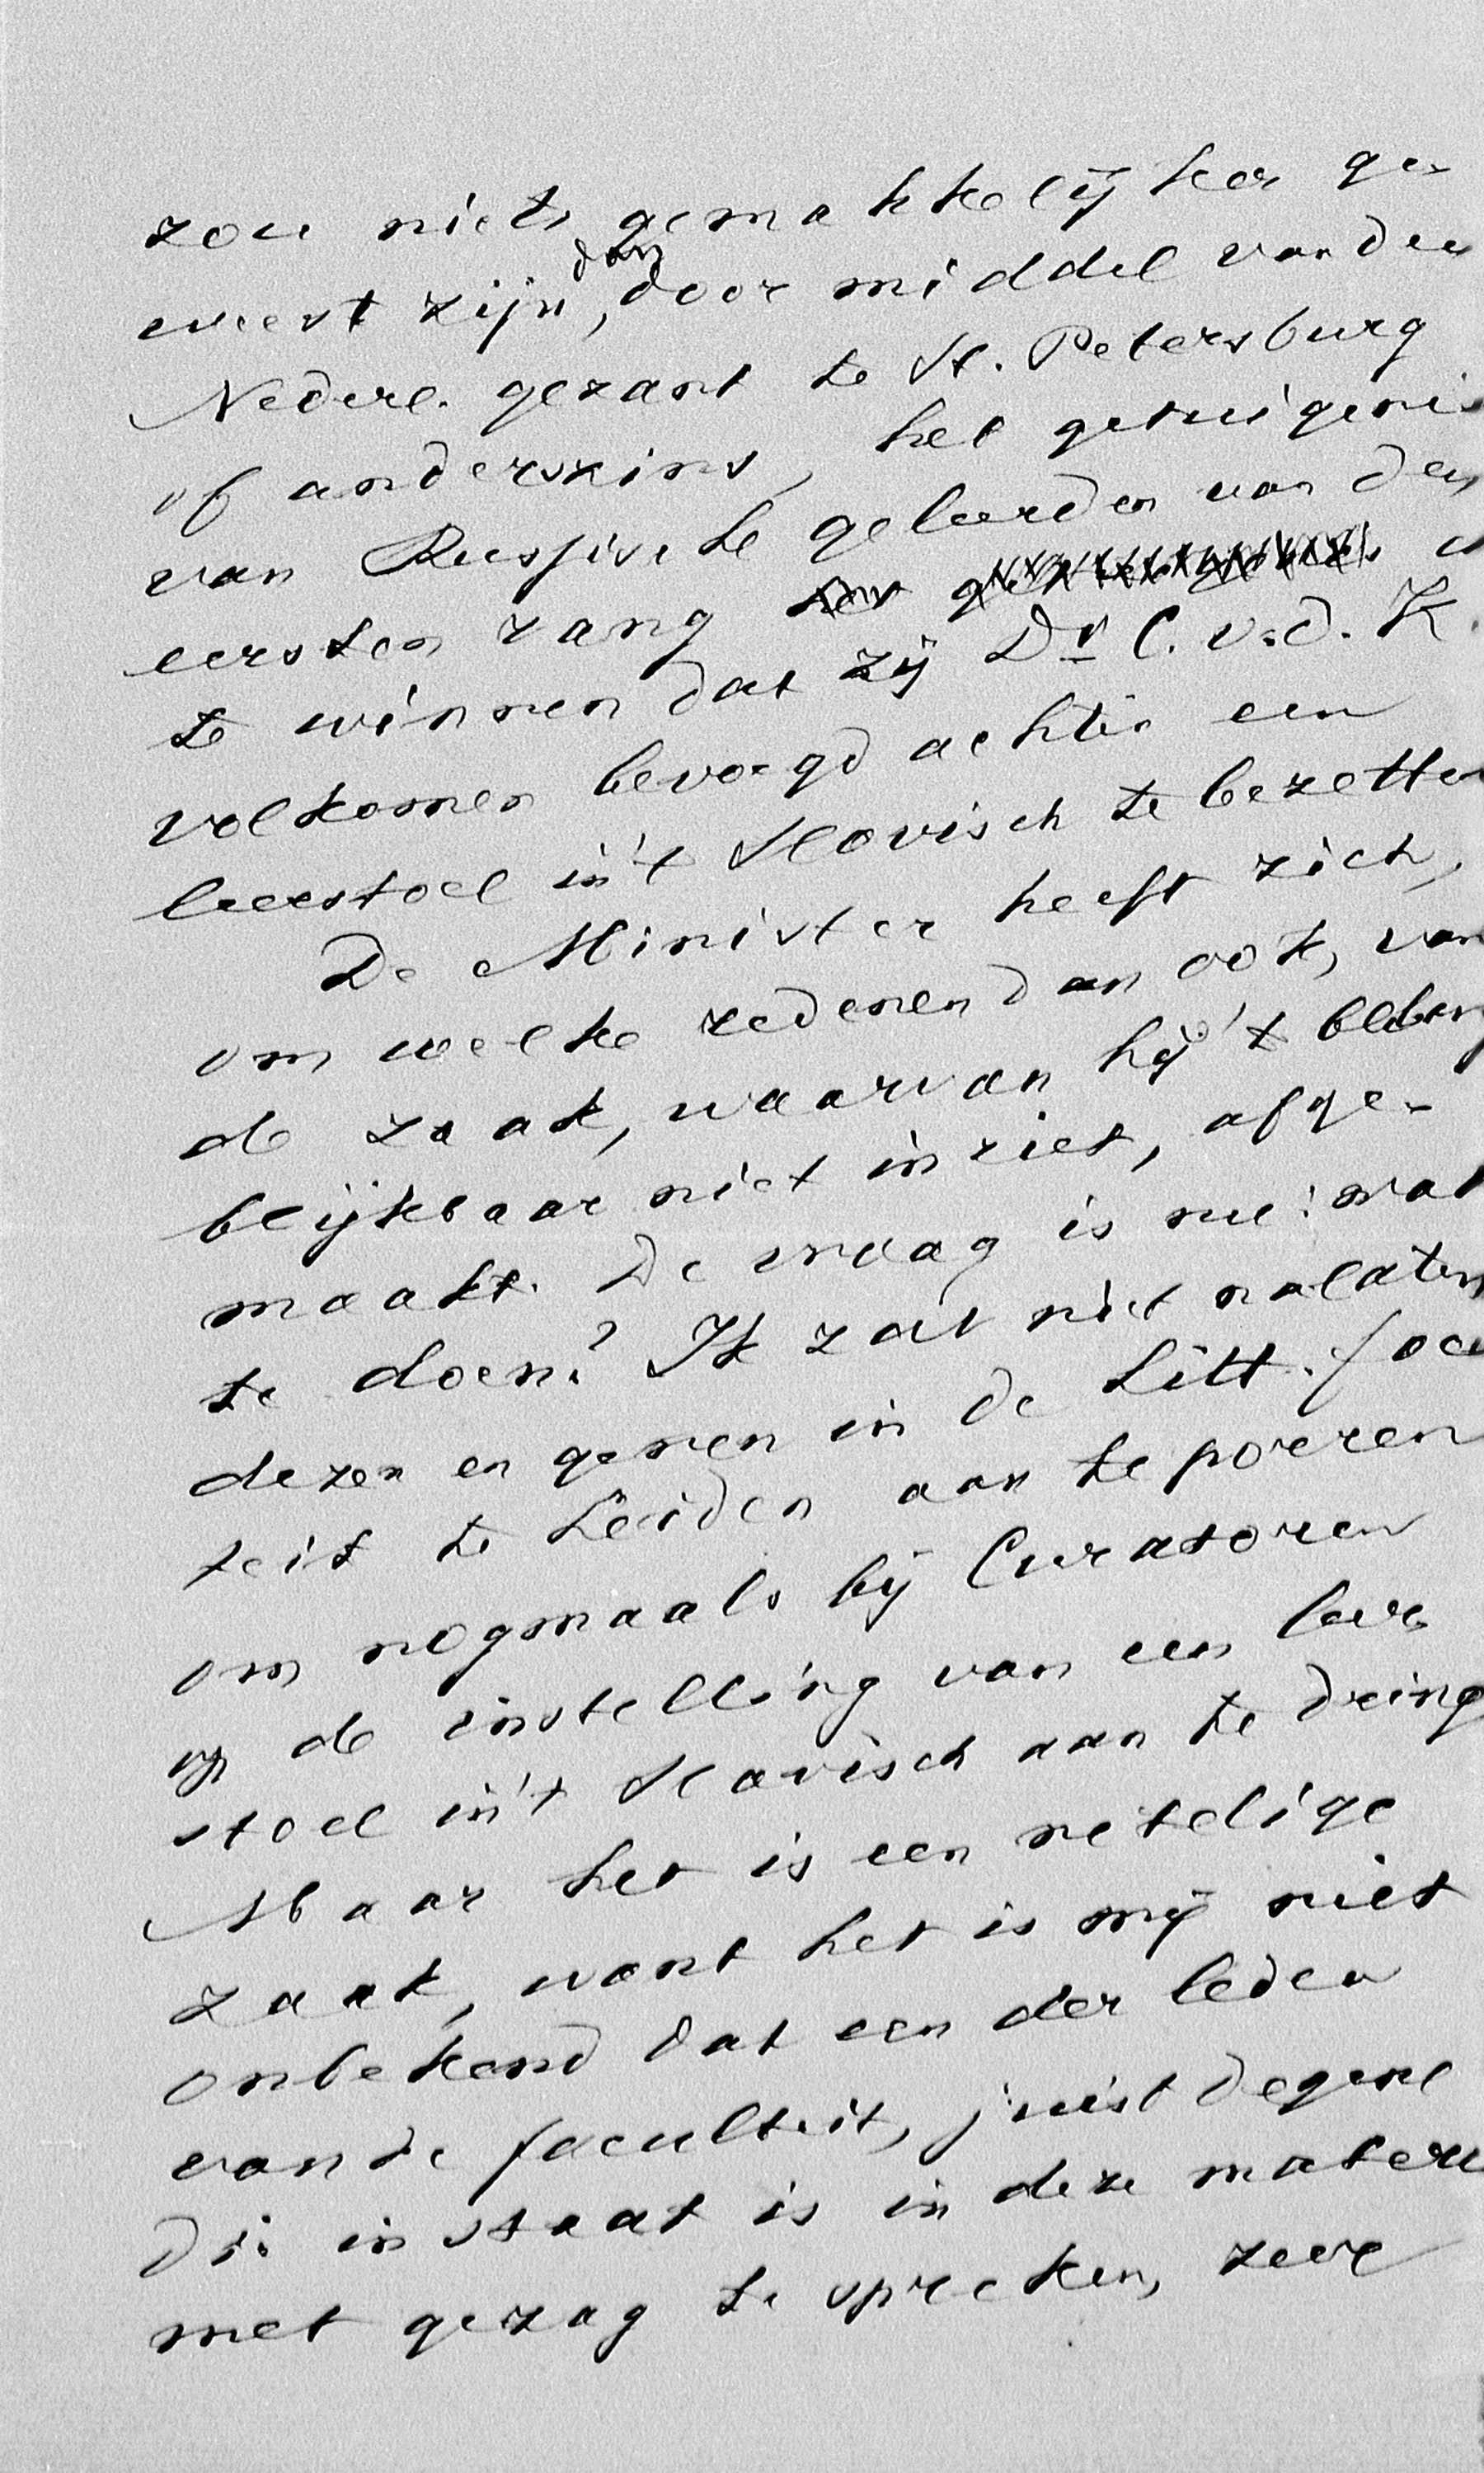 zou niets gemakkelijker ge-
weest zijn, dan door middel van den
Nederl. gezant te St. Petersburg
of anderszins, het getuigenis
van Russische geleerden van den
eersten rang
te winnen dat zij Dr C. v. d. K.
volkomen bevoegd achten een
leerstoel in 't Slavisch te bezetten
De Minister heeft zich,
om welke redenen dan ook, van
de zaak, waarvan hij 't belang
blijkbaar niet inziet, afge-
maakt. De vraag is nu: wat
te doen? Ik zal niet nalaten
dezen en genen in de Litt. facul
teit te Leiden aan te porren
om nogmaals bij Curatoren
op de instelling van een leer
stoel in 't Slavisch aan te dring
Maar het is een netelige
zaak, want het is mij niet
onbekend dat een der leden
van de faculteit, juist degene
die in staat is in deze materie
met gezag te spreken, zeer